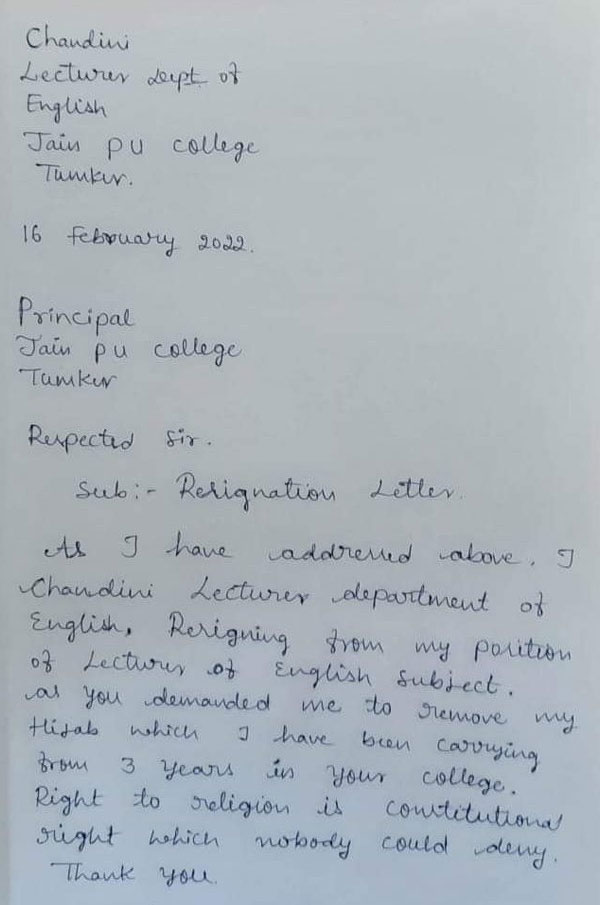 Chandini
Lecturer dept of
English
Jain pu college
Tumkur.
16 February 2022.
Principal
Jain pu college
Tumkur
Respected Sir.
Sub:- Resignation Letter.
As I have addressed above. I
Chandini Lecturer department of
English, Resigning from my position
of Lecturer of English Subject.
as you demanded me to remove my
Hijab which I have been carrying
from 3 years in your college.
Right to religion is constitutional
right which nobody could deny.
Thank you.